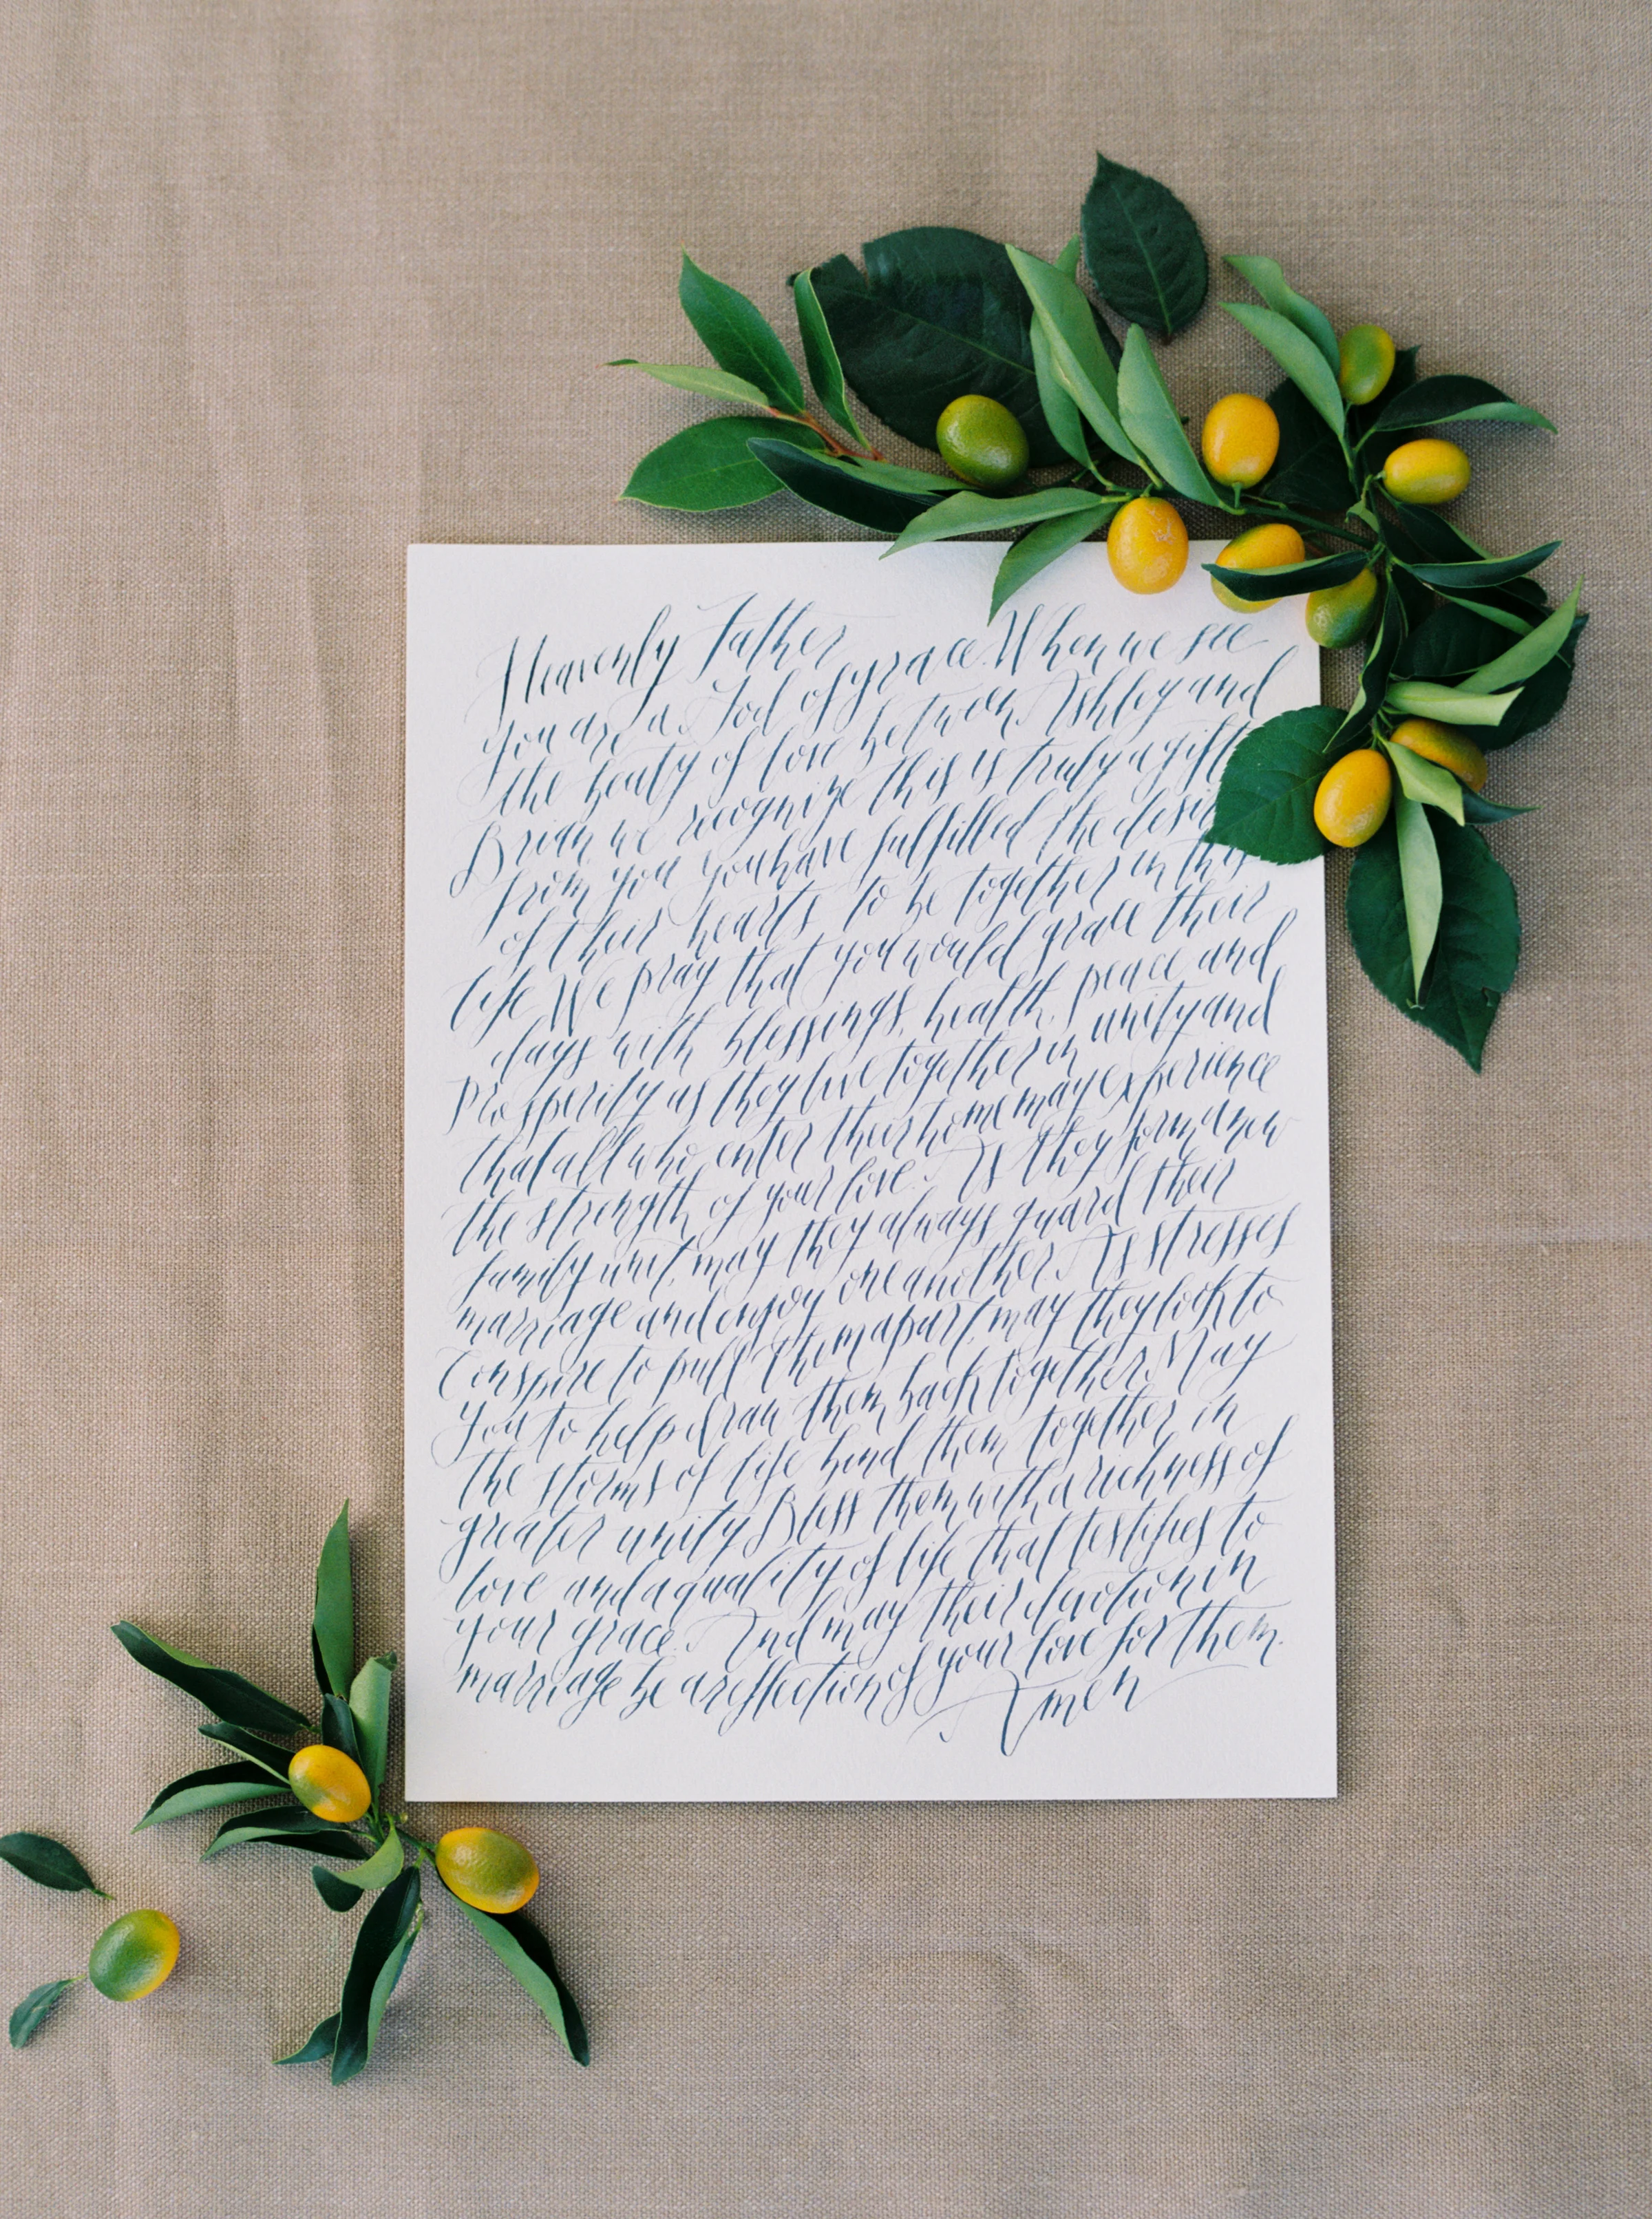 Heavenly Father
you are a God of grace. When we see
the beauty of love between Ashley and
Brian, we recognize this is truly a gift
from you you have fulfilled the desires
of their hearts to be together in this
life. We pray that you would grace their
days with blessings, health, peace and
prosperity as they live together in unity and
that all who enter their home may experience
the strength of your love. As they form a new
family unit, may they always guard their
marriage and enjoy one another. As stresses
conspire to pull them apart, may they look to
You to help draw them back together. May
the storms of life bind them together in
greater unity Bless them with a richness of
love and a quality of life that testifies to
your grace. And may their devotion in
marriage be a reflection of your love for them.
Amen